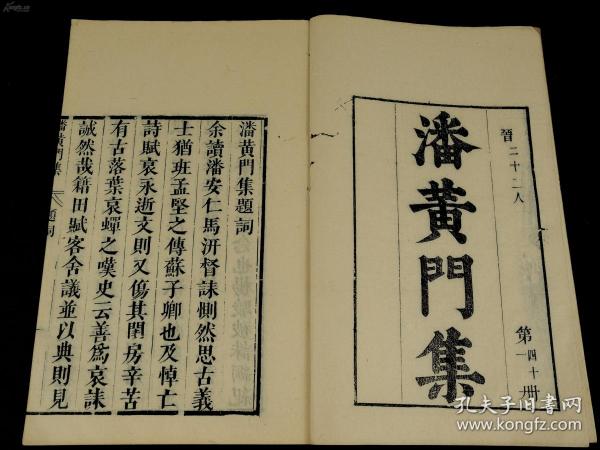 晉二十二人
潘黃門集
第四十一冊
潘黃門集題詞
余讀潘安仁馬汧督誄惻然思古義
士猶班孟堅之傳蘇子卿也及悼亡
詩賦哀永逝文則又傷其閨房辛苦
有古落葉哀蟬之嘆史云善為哀誄
誠然哉籍田賦客舍議並以典則見
潘黃門集
題詞
孔夫子旧书网
www.kongfz.com